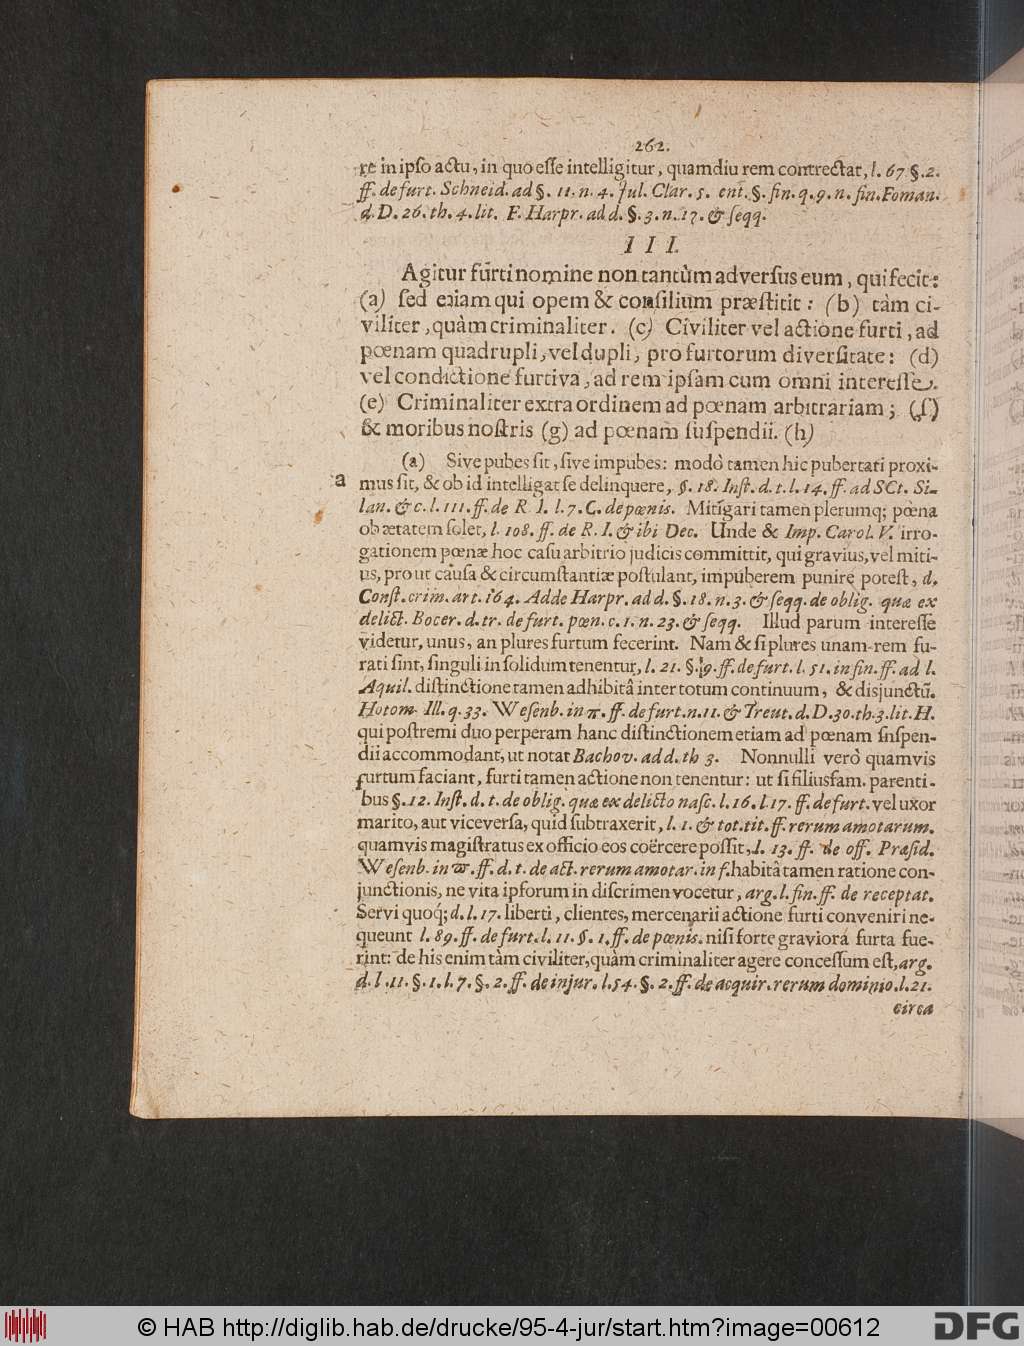 262.
re in ipſo actu, in quo eſſe intelligitur, quamdiu rem contrectat, l. 67. §. 2.
ff. de furt. Schneid. ad §. 11. n. 4. Jul. Clar. 5. ent. §. fin. q. 9. n. fin. Foman.
d. D. 26. th. 4. lit. F. Harpr. ad d. §. 3. n. 17. & ſeqq.
III.
Agitur furti nomine non tantùm adverſus eum, qui fecit:
(a) ſed etiam qui opem & conſilium præſtitit: (b) tàm ci-
viliter, quàm criminaliter. (c) Civiliter vel actione furti, ad
pœnam quadrupli, vel dupli, pro furtorum diverſitate: (d)
vel condictione furtiva, ad rem ipſam cum omni intereſſe.
(e) Criminaliter extra ordinem ad pœnam arbitrariam; (f)
& moribus noſtris (g) ad pœnam ſuſpendii. (h)
(a) Sive pubes ſit, ſive impubes: modò tamen hic pubertati proxi-
a mus ſit, & ob id intelligat ſe delinquere, §. 18. Inſt. d. t. l. 14. ff. ad SCt. Si-
lan. & c. l. 111. ff. de R. I. l. 7. C. de pœnis. Mitigari tamen plerumq; pœna
ob ætatem ſolet, l. 108. ff. de R. I. & ibi Dec. Unde & Imp. Carol. V. irro-
gationem pœnæ hoc caſu arbitrio judicis committit, qui gravius, vel miti-
us, prout cauſa & circumſtantiæ poſtulant, impuberem punire poteſt, d.
Conſt. crim. art. 164. Adde Harpr. ad d. §. 18. n. 3. & ſeqq. de oblig. quæ ex
delict. Bocer. d. tr. de furt. pœn. c. 1. n. 23. & ſeqq. Illud parum intereſſe
videtur, unus, an plures furtum fecerint. Nam & ſi plures unam rem fu-
rati ſint, ſinguli in ſolidum tenentur, l. 21. §. 9. ff. de furt. l. 51. in fin. ff. ad l.
Aquil. diſtinctione tamen adhibitâ inter totum continuum, & disjunctũ.
Hotom. Ill. q. 33. Weſenb. in π. ff. de furt. n. 11. & Treut. d. D. 30. th. 3. lit. H.
qui poſtremi duo perperam hanc diſtinctionem etiam ad pœnam ſnſpen-
dii accommodant, ut notat Bachov. ad d. th 3. Nonnulli verò quamvis
furtum faciant, furti tamen actione non tenentur: ut ſi filiusfam. parenti-
bus §. 12. Inſt. d. t. de oblig. quæ ex delicto naſc. l. 16. l. 17. ff. de furt. vel uxor
marito, aut viceverſa, quid ſubtraxerit, l. 1. & tot. tit. ff. rerum amotarum.
quamvis magiſtratus ex officio eos coërcere poſſit, l. 13. ff. de off. Præſid.
Weſenb. in ϖ. ff. d. t. de act. rerum amotar. in f. habitâ tamen ratione con-
junctionis, ne vita ipſorum in diſcrimen vocetur, arg. l. fin. ff. de receptat.
Servi quoq́; d. l. 17. liberti, clientes, mercenarii actione furti conveniri ne-
queunt l. 89. ff. de furt. l. 11. §. 1. ff. de pœnis. niſi forte graviora furta fue-
rint: de his enim tàm civiliter, quàm criminaliter agere conceſſum eſt, arg.
d. l. 11. §. 1. l. 7. §. 2. ff. de injur. l. 54. §. 2. ff. de acquir. rerum dominio. l. 21.
circa
© HAB http://diglib.hab.de/drucke/95-4-jur/start.htm?image=00612
DFG